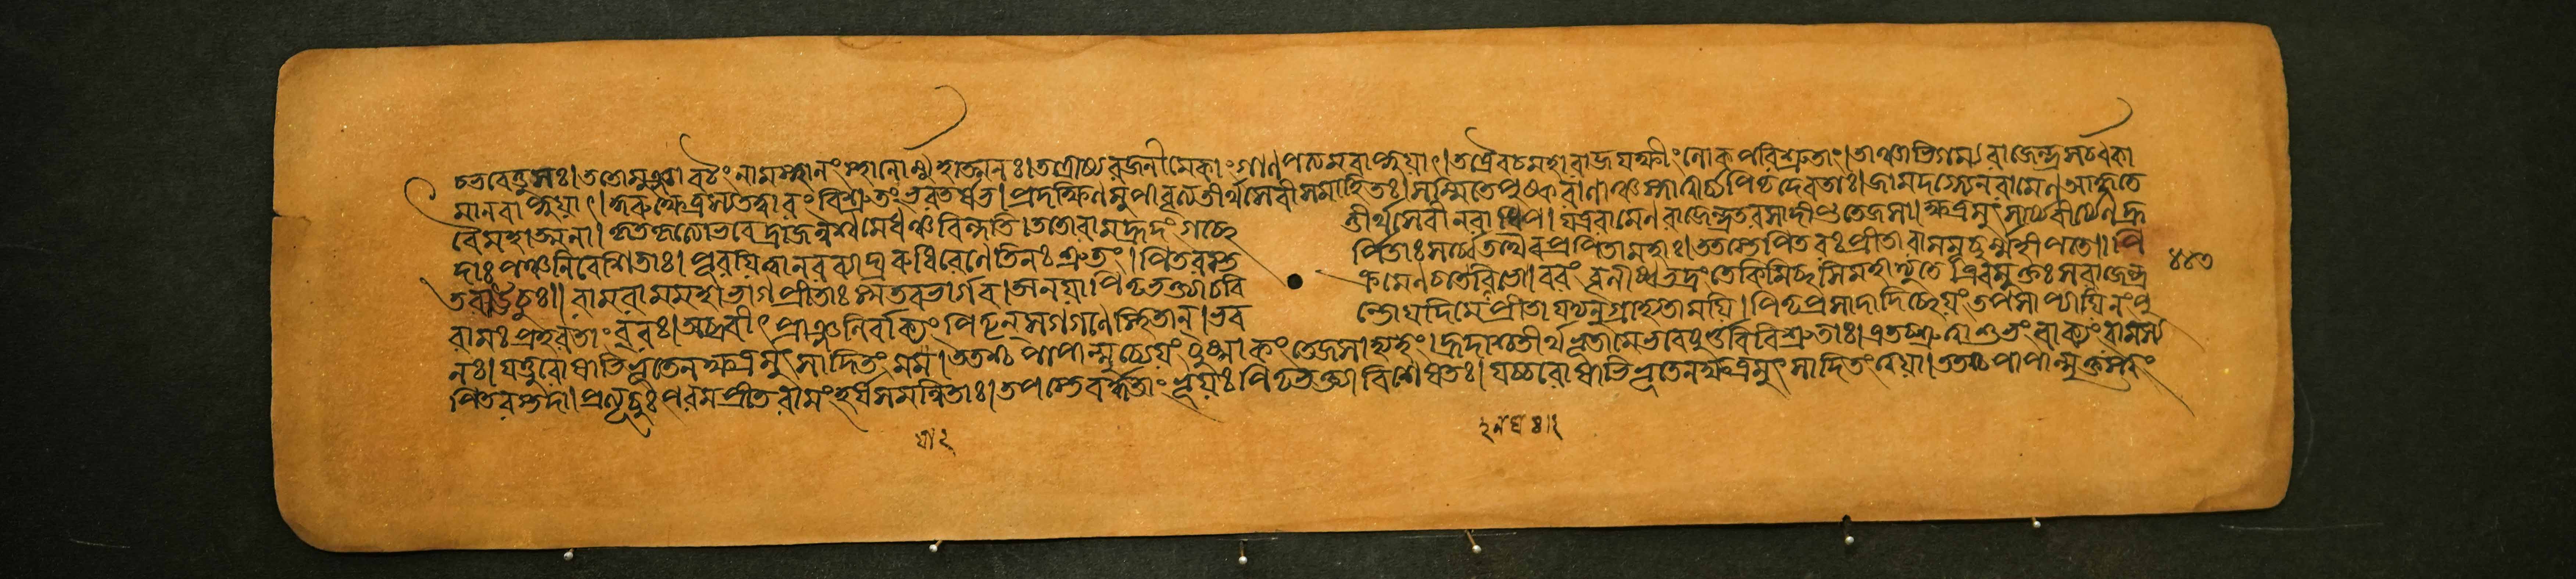 চতবেত্তুসঃ।ততোমুঞ্জা বটংনামস্থানংস্থানোর্ম্মহাত্মনঃ।তত্রোষ্য রজনীমেকাং গাণপত্যমবাপ্নুয়াৎ।তত্রৈবচমহারাজযক্ষীং লোকপরিশ্রুতাং।তাঞ্চাভিগম্য রাজেন্দ্র সর্ব্বকা
মানবাপ্নুয়াৎ।কুরুক্ষেত্রস্যতদ্দ্বারং বিশ্রুতং ভরতর্ষভ।প্রদক্ষিণমুপাবৃত্যতীর্থসেবীসমাহিতঃ।সম্মিতেপুষ্করাণাঞ্চস্নাত্বার্চ্চ্যপিতৃদেবতাঃ।জামদগ্ন্যেনরামেণ আহৃতে
বৈমহাত্মনা।কৃতকৃত্যোভবেদ্রাজন্নশ্বমেধঞ্চবিন্দতি।ততোরামহ্রদংগচ্ছে তীর্থসেবীনরাধিপ।যত্ররামেণরাজেন্দ্রতরসাদীপ্ততেজসা।ক্ষত্রমুৎসাদ্যবীর্য্যেণহ্র
দাঃপঞ্চনিবেশিতাঃ।পূরয়িত্বানরব্যাঘ্র রুধিরেণেতিনঃশ্রুতং।পিতরস্ত র্পিতাঃসর্ব্বেতথৈবপ্রপিতামহাঃ।ততস্তেপিতরঃপ্রীতারামমূচুর্ম্মহীপতে।।পি ৪৪৩
তরঊচুঃ।।রামরামমহাভাগপ্রীতাঃস্মতবভার্গব।অনয়াপিতৃভক্ত্যাচবি ক্রমেণচতেবিভো।বরং বৃণীষ্বভদ্রংতেকিমিচ্ছসিমহাদ্যুতে এবমুক্তঃসরাজেন্দ্র
রামঃপ্রহরতাংবরঃ।অব্রবীৎ প্রাঞ্জলির্বাক্যং পিতৃন্ সগগণেস্থিতান্।ভব ন্তোযদিমেপ্রীতাযদ্যনুগ্রাহ্যতাময়ি।পিতৃপ্রসাদাদিচ্ছেয়ংতপসাপ্যায়িনংপু
নঃ।যচ্চরোষাভিভূতেনক্ষত্রমুৎসাদিতংময়া।ততশ্চ পাপান্মুচ্যেয়ং যুষ্মাকংতেজসাহ্যহং।হ্রদাশ্চতীর্থভূতামেভবেয়ুর্ভুবিবিশ্রুতাঃ।এতচ্ছ্রুত্বাশুভংবাক্যংরামস্য
পিতরস্তদা।প্রত্যূচুঃ পরমপ্রীতারামংহর্ষসমন্বিতাঃ।তপস্তেবর্দ্ধতাংভূয়ঃপিতৃভক্ত্যাবিশেষতঃ।যচ্চরোষাভিভূতেনক্ষত্রমুৎসাদিতংত্বয়া।ততশ্চপাপান্মুক্তস্ত্বং